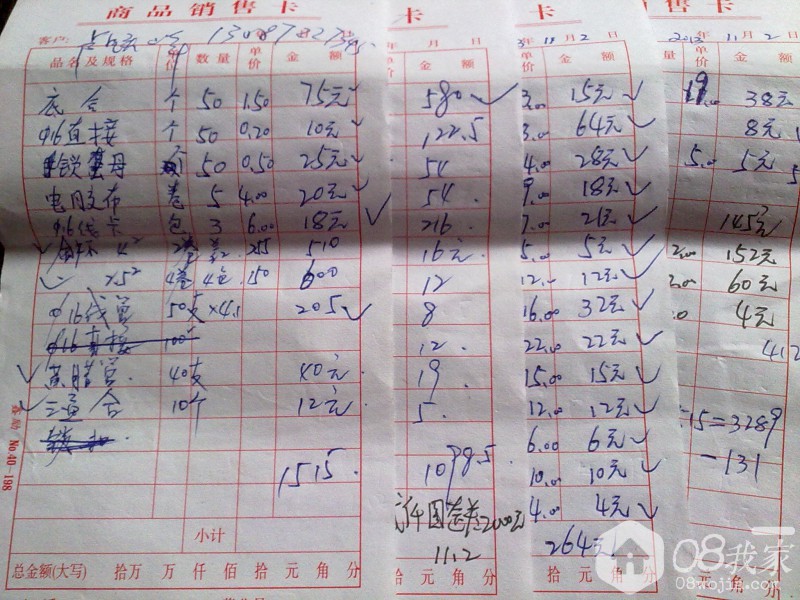 商品销售卡
客户: 13087827395
品名及规格 单位 数量 单价 金额
底合 个 50 1.50 75元
φ16直接 个 50 0.20 10元
锁母 个 50 0.50 25元
电用胶布 卷 5 4.00 20元
φ16线卡 包 3 6.00 18元
4² 2卷 255 510
×5² 4卷 150 600
φ16线管 50支 ×4.1 205
φ16直接 100个
黄腊管 40支 40元
三通合 10个 12元
1515.
小计
总金额(大写) 拾 万 万 仟 佰 拾 元 角 分
客勋 No.40-198
卡
年 月 日
单价 金额
580
122.5
54
54
216
16元
12
8
12
19
5
1098.5
2000元
11.2
拾 元 角 分
卡
年 11 月 2 日
单价 金额
3.00 15元
3.00 64元
4.00 28元
9.00 18元
7.00 21元
5.00 5元
12.00 12元
16.00 32元
22.00 22元
15.00 15元
12.00 12元
6.00 6元
10.00 10元
4.00 4元
264元
拾 元 角 分
售卡
2012年 11月 2日
单价 金额
19.00 38元
8元
5.00 5元
145元
2.00 152元
2.00 60元
.0 4元
412
15=3289
-131
元 角 分
08我家
08wojia.com